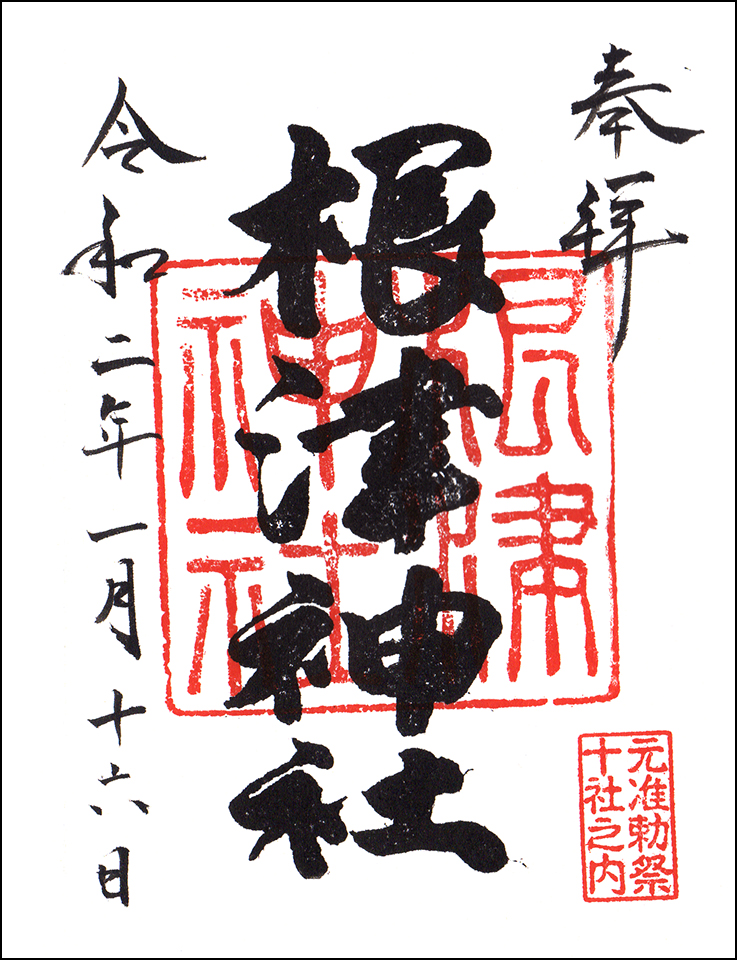 奉拝
根津神社
根津
神社
元准勅祭
十社之内
令和二年一月十六日